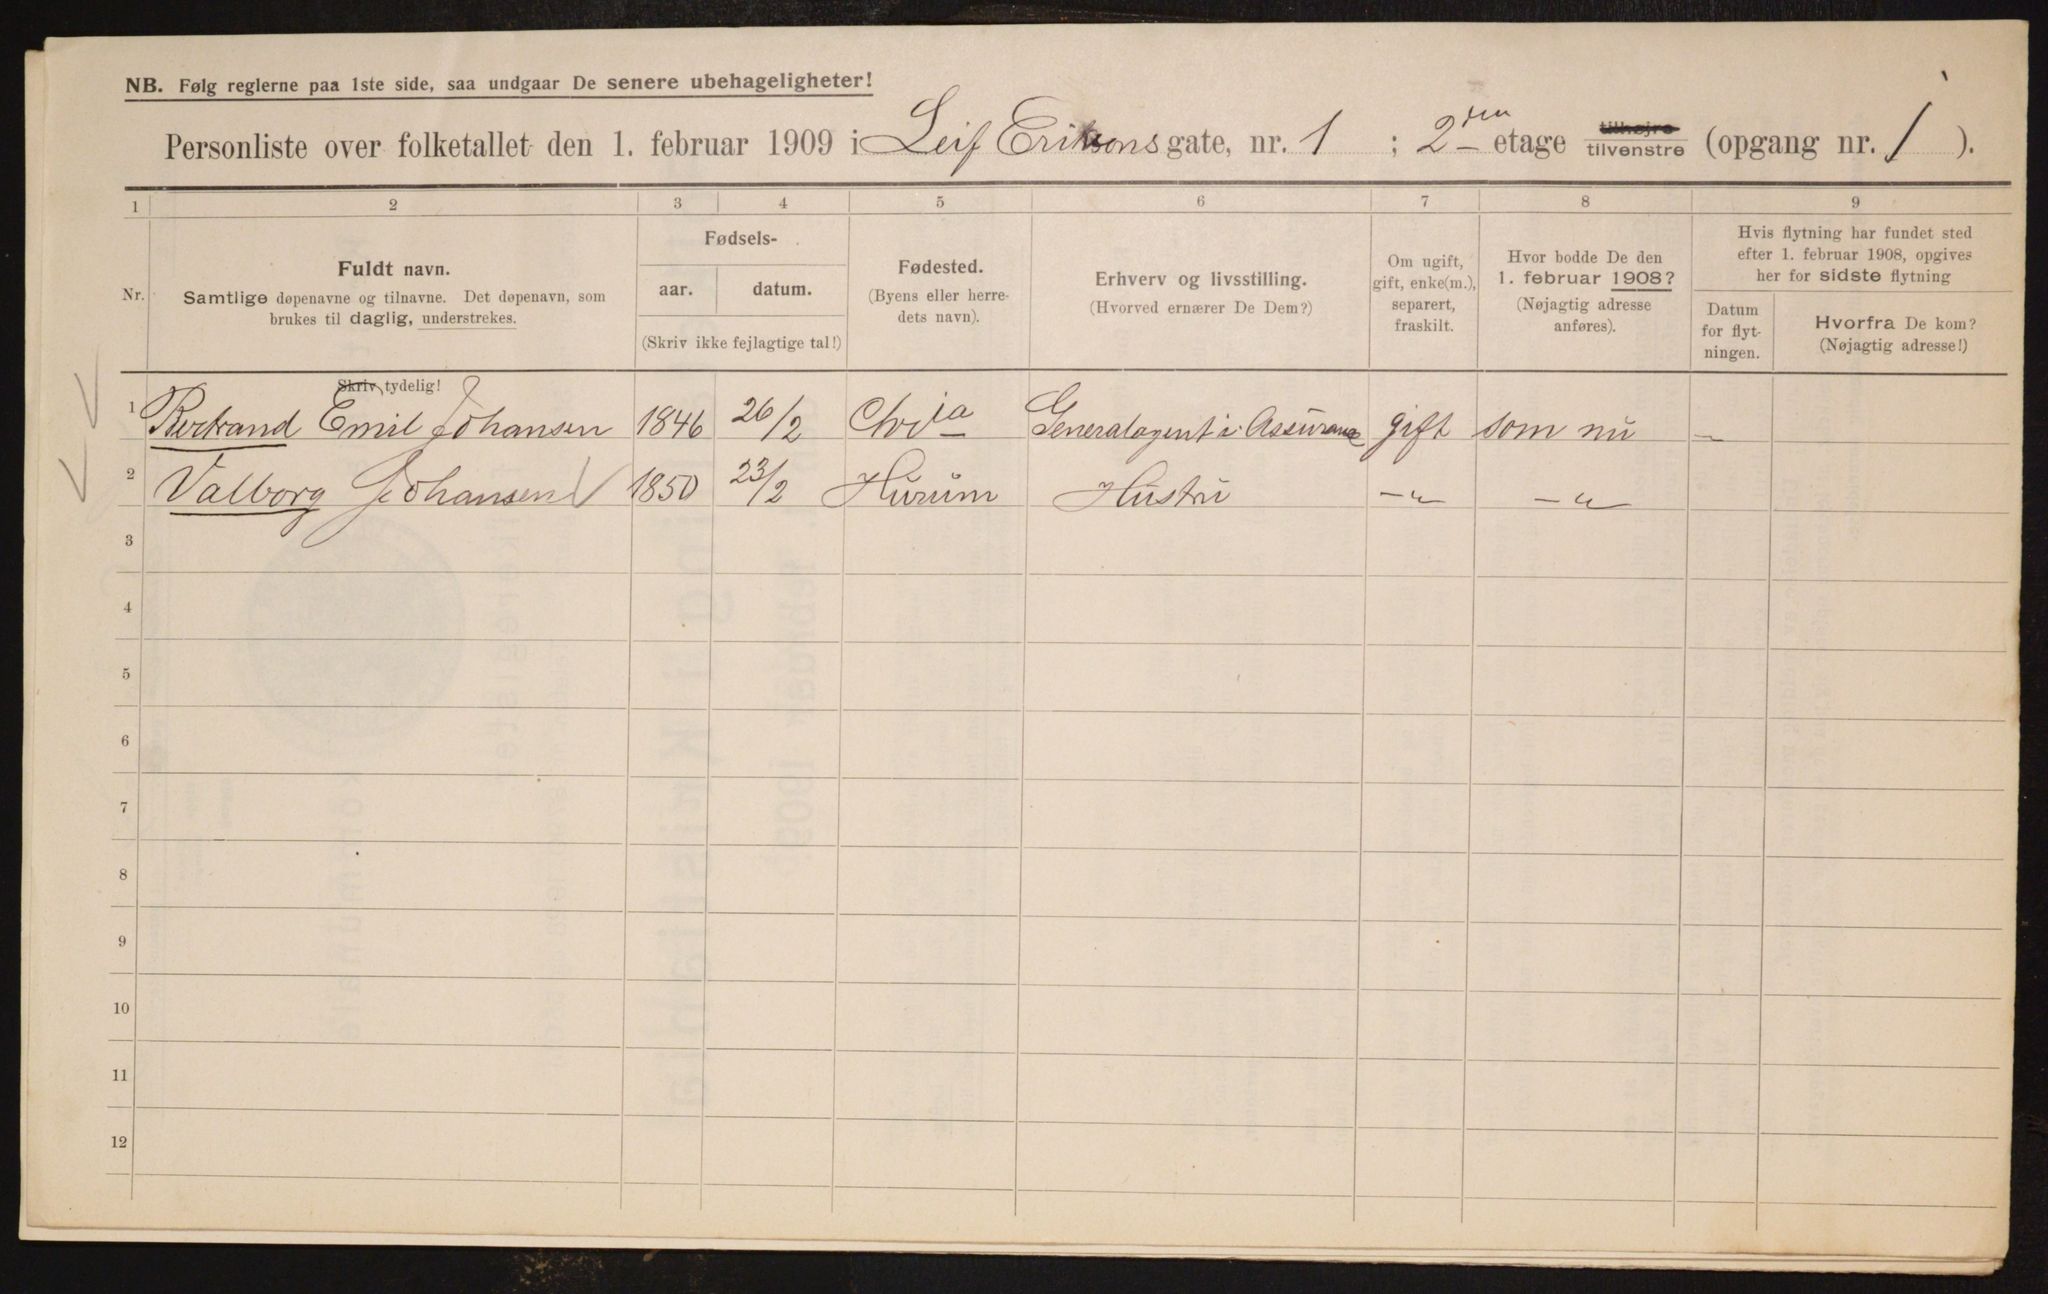 NB. Følg reglerne paa 1ste side, saa undgaar De senere ubehageligheter!
Personliste over folketallet den 1. februar 1909 i Leif Eriksons gate, nr. 1 ; 2den etage tilhøjre tilvenstre (opgang nr. 1).
1 2 3 4 5 6 7 8 9
Nr.
Fuldt navn.
Samtlige døpenavne og tilnavne. Det døpenavn, som
brukes til daglig, understrekes.
Fødsels-
aar. datum.
(Skriv ikke fejlagtige tal!)
Fødested.
(Byens eller herre-
dets navn).
Erhverv og livsstilling.
(Hvorved ernærer De Dem?)
Om ugift,
gift, enke(m.),
separert,
fraskilt.
Hvor bodde De den
1. februar 1908?
(Nøjagtig adresse
anføres).
Hvis flytning har fundet sted
efter 1. februar 1908, opgives
her for sidste flytning
Datum
for flyt-
ningen.
Hvorfra De kom?
(Nøjagtig adresse!)
Skriv tydelig!
1 Bertrand Emil Johansen 1846 26/2 Chria Generalagent i Assurance gift som nu —
2 Valborg Johansen 1850 23/2 Hurum Hustru —"— —"—
3
4
5
6
7
8
9
10
11
12